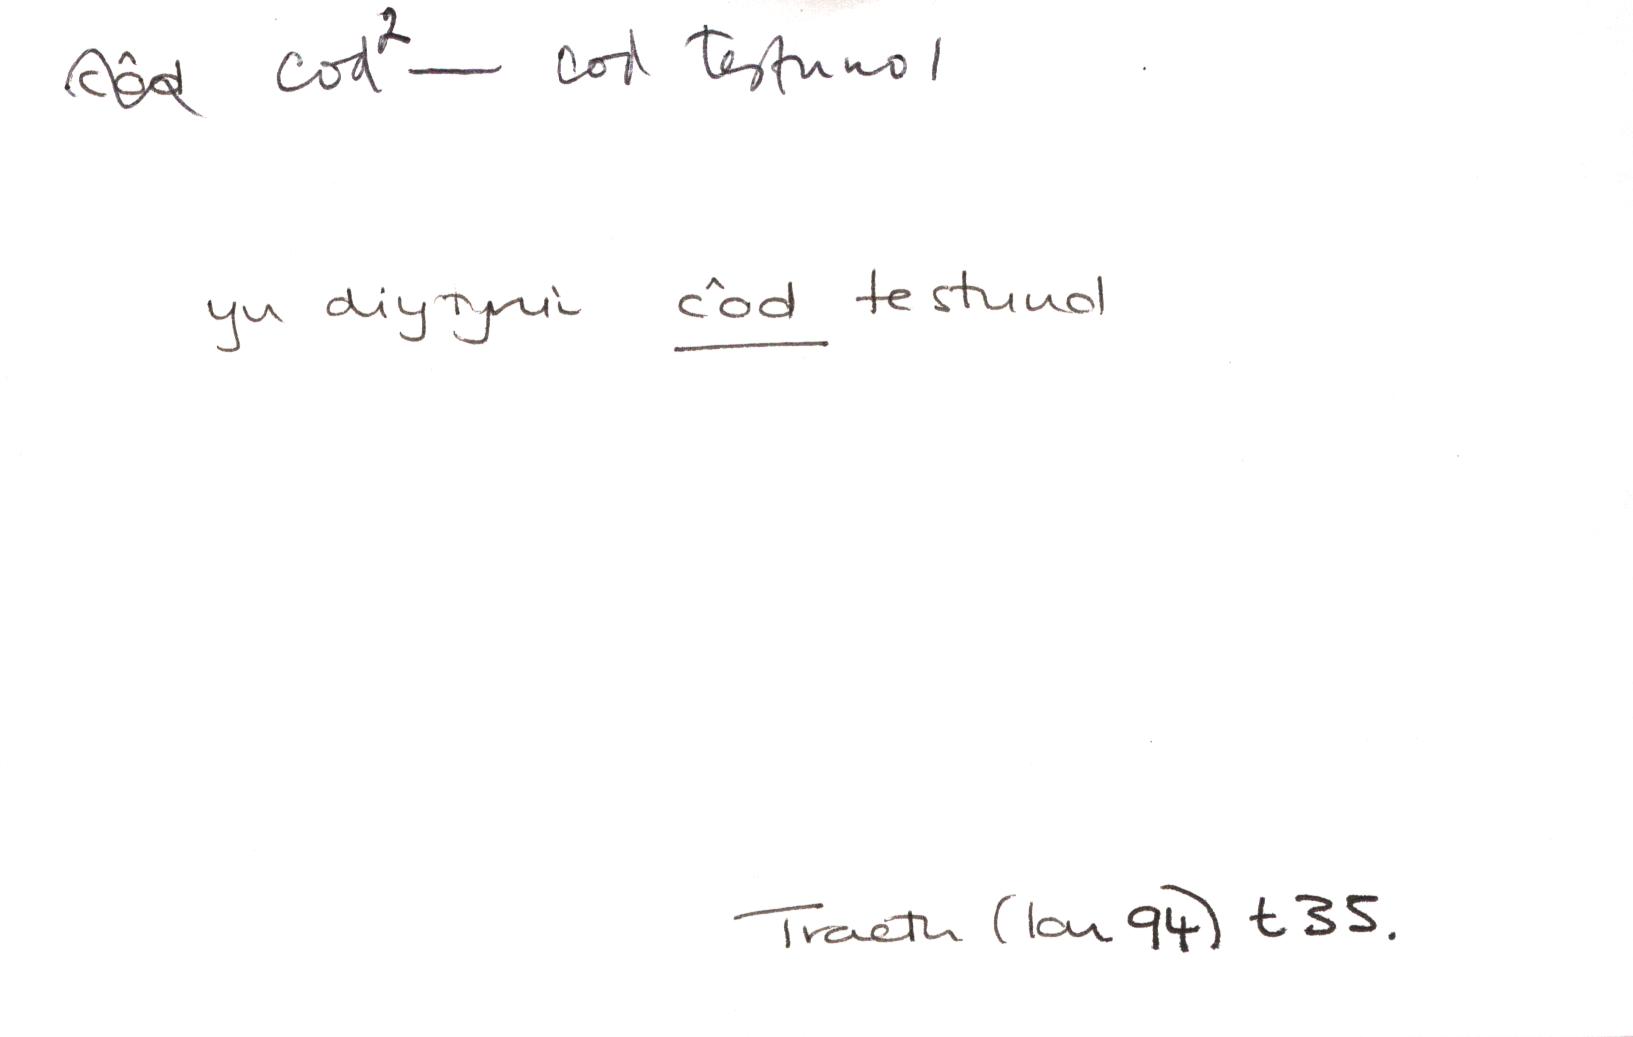 côd cod² — cod testunol
yn côd testunol
Traeth (Ion 94) t 35.